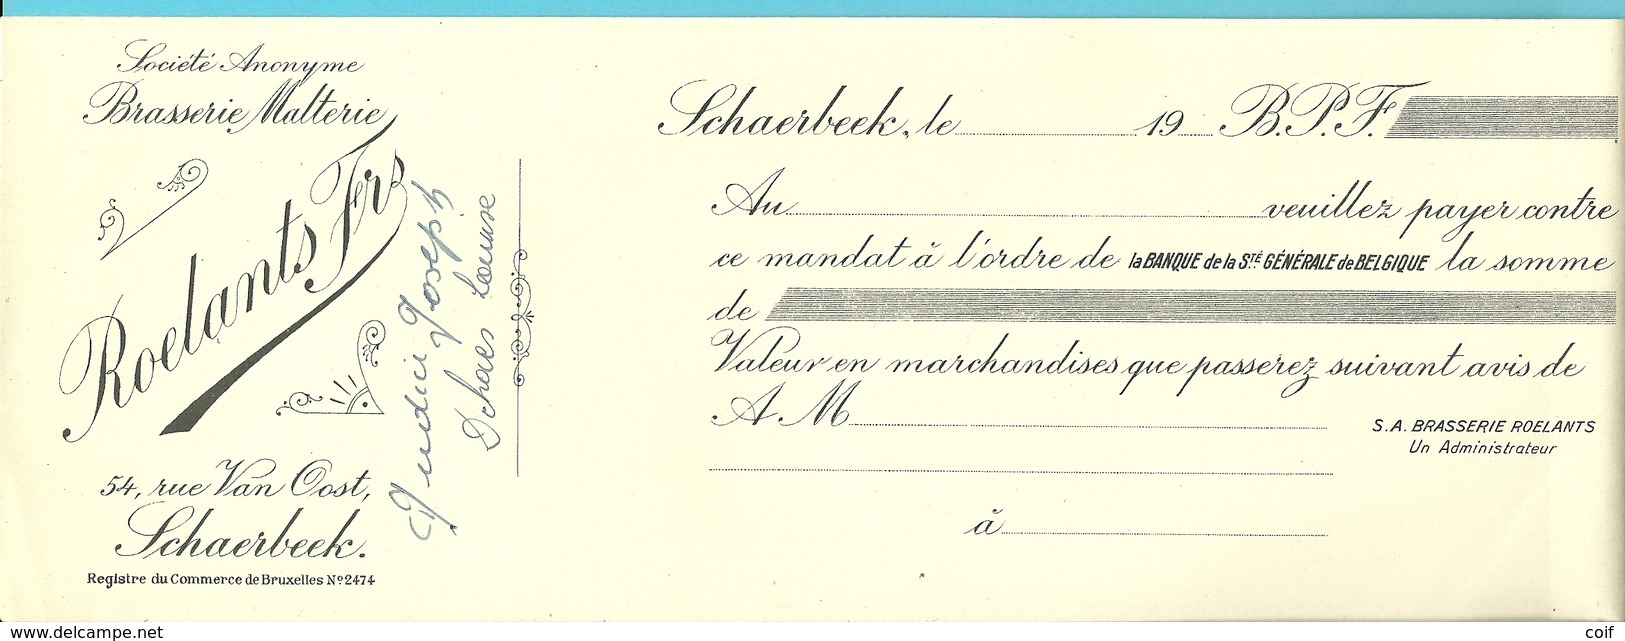 Société Anonyme
Brasserie Malterie
Roelants Frs
54, rue Van Oost,
Schaerbeek.
Registre du Commerce de Bruxelles Nº 2474
Joseph
Dchaes Louise
Schaerbeek, le 19 B.P.F.
Au veuillez payer contre
ce mandat à l'ordre de la BANQUE de la STÉ GÉNÉRALE de BELGIQUE la somme
de
Valeur en marchandises que passerez suivant avis de
A M
S.A. BRASSERIE ROELANTS
Un Administrateur
à
www.delcampe.net
coif